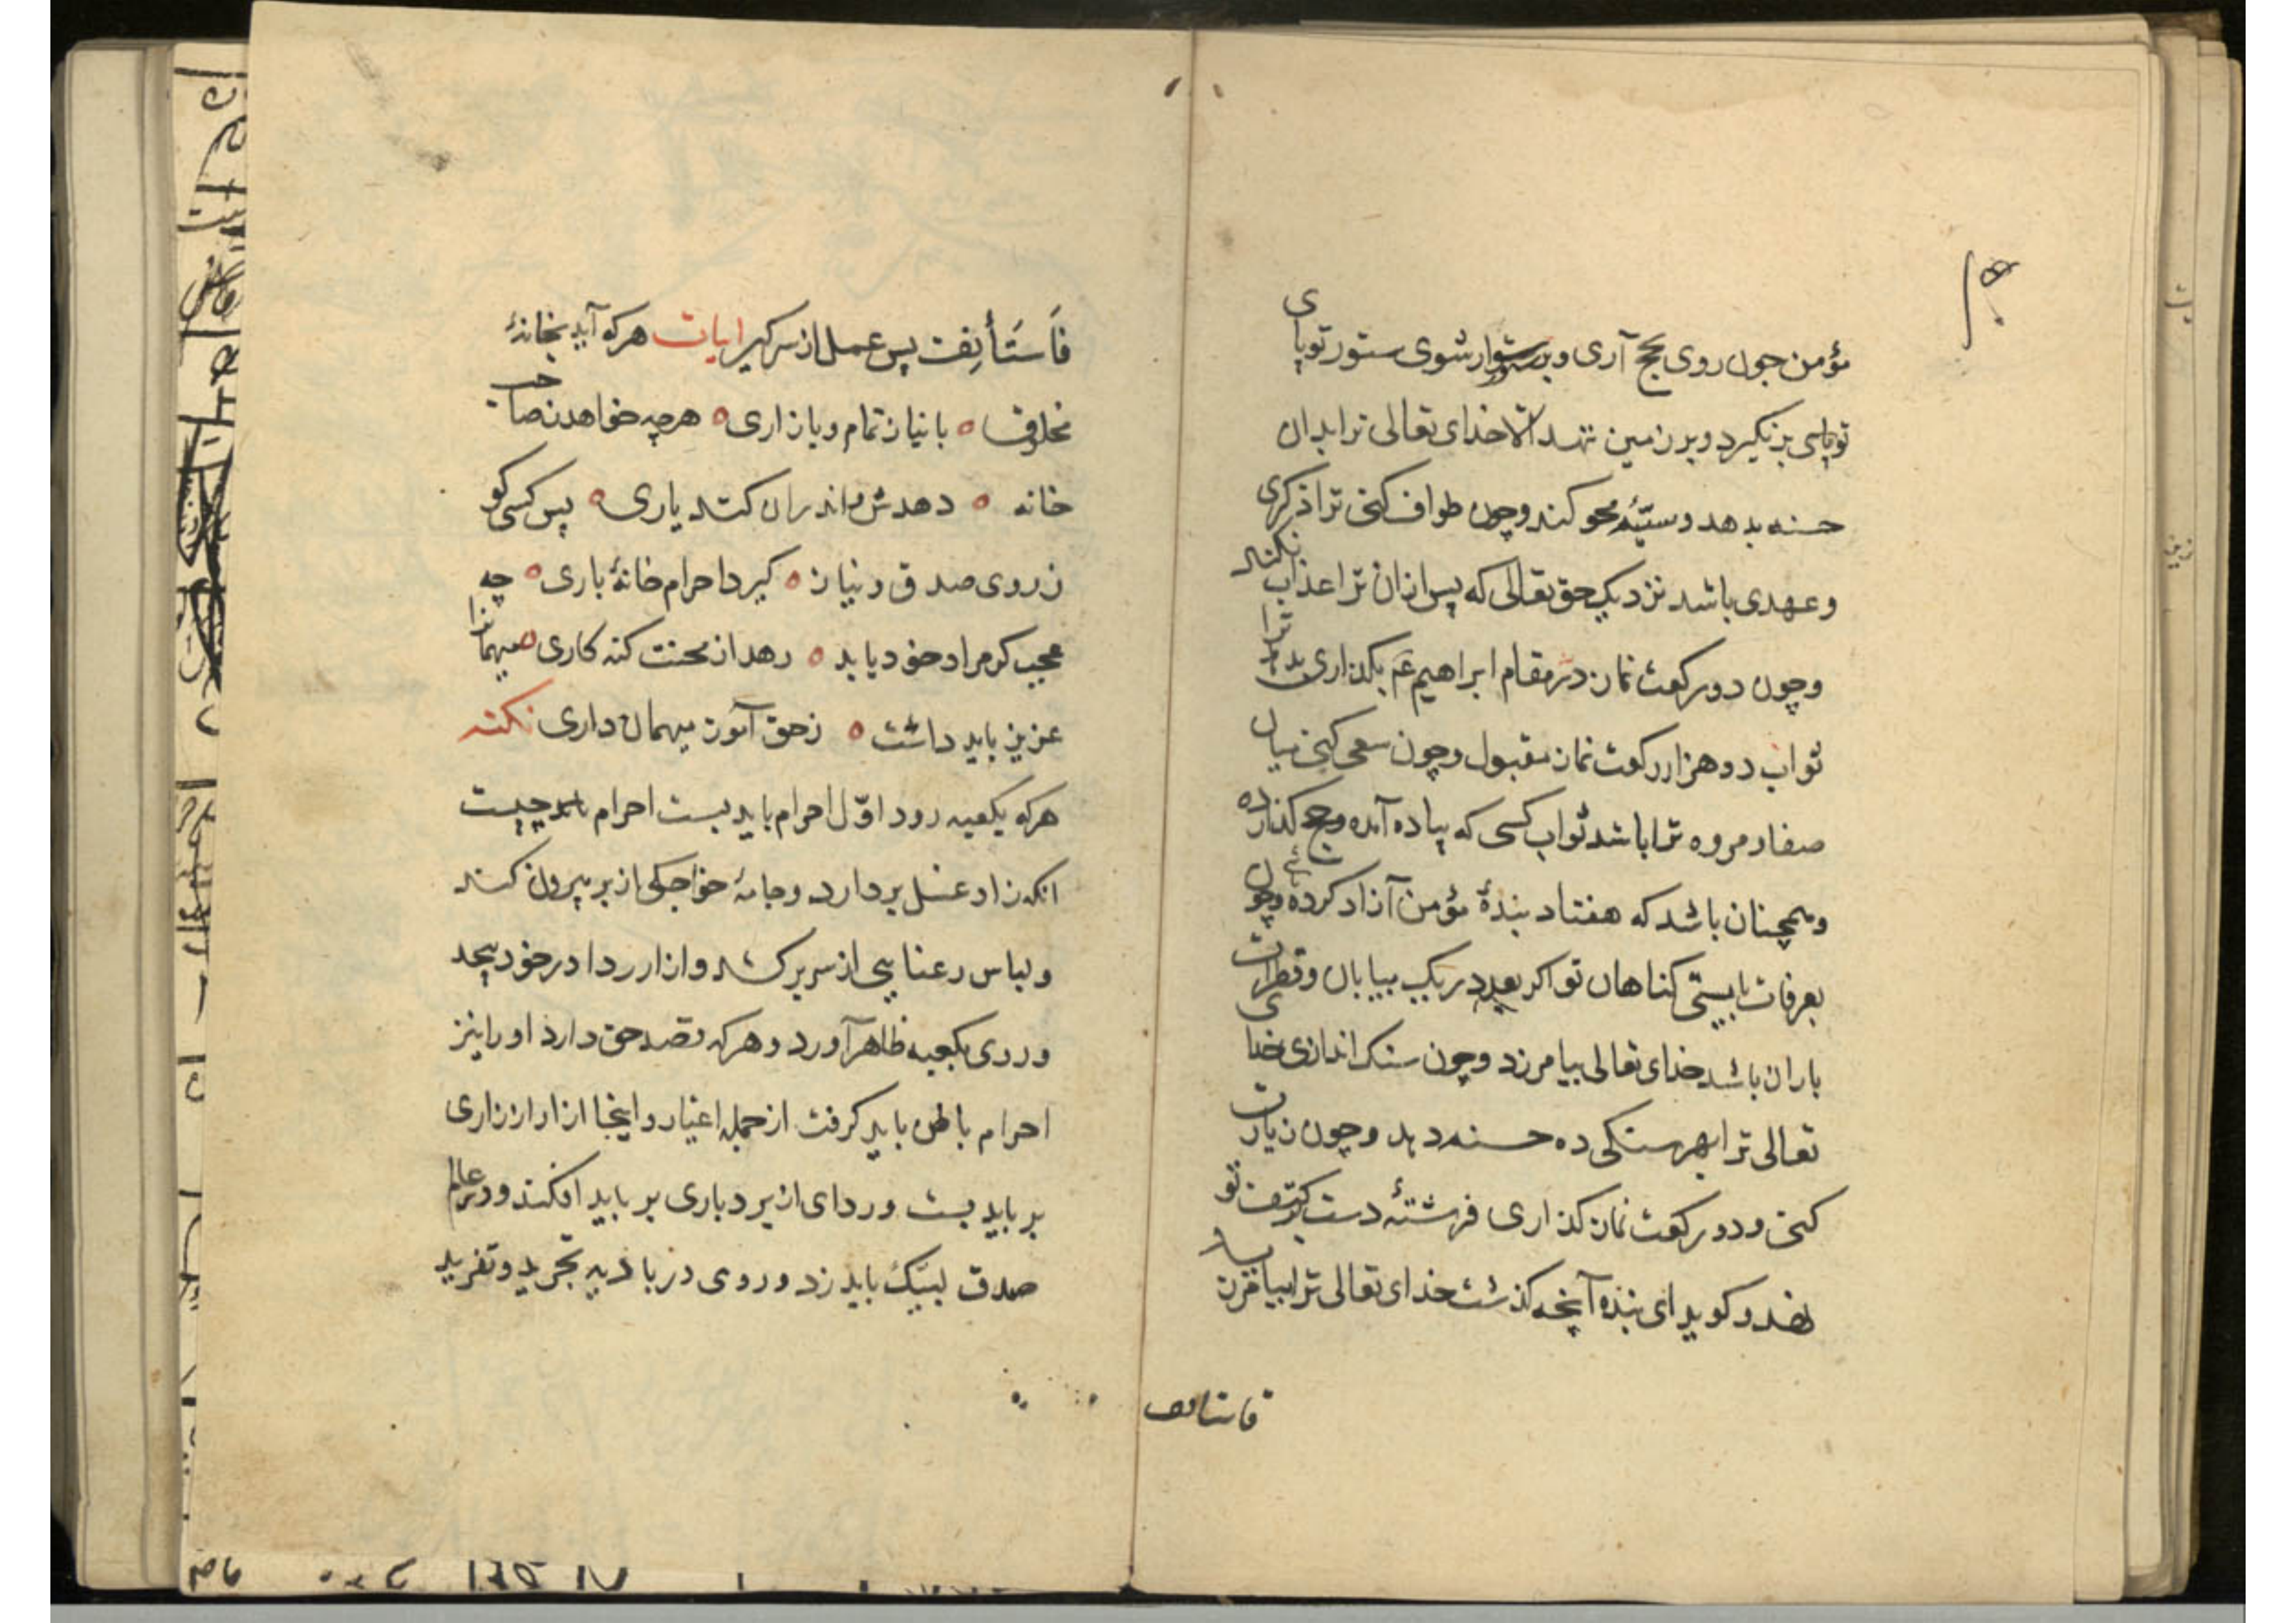 مؤمن چون روی بحج آری و بر ستور سوار شوی ستور تو پای
تو پای بر نگیرد و بر زمین ننهد الا خدای تعالی ترا بدان
حسنه بدهد و سیّئه محو کند و چون طواف کنی ترا ذکری
وعهدی باشد نزدیک حق تعالی که پس ازان ترا عذاب نکند
وچون دو رکعت نماز در مقام ابراهیم عم بگذاری ترا
ثواب دو هزار رکعت نماز مقبول وچون سعی کنی میان
صفا و مروه ترا باشد ثواب کسی که پیاده آمده وحج گذارده
وهمچنان باشد که هفتاد بندۀ مؤمن آزاد کرده وچون
بعرفات بایستی کناهان تو اکر بعدد ریک بیابان وقطرات
باران باشد خدای تعالی بیامرزد وچون سنک اندازی خدای
تعالی ترا بهر سنکی ده حسنه دهد وچون زیارت
کنی و دو رکعت نماز کذاری فرشتۀ دست بر کتف تو
نهد و کوید ای بنده آنچه کذشت خدای تعالی ترا بیامرزید
فاستانف
فَاَستَأنِف پس عمل از سر کیر ابیات هرکه آید بخانۀ
مخلوق ه با نیاز تمام و با زاری ه هرچه خواهد ز صاحب
خانه ه دهدش و اندران کند یاری ه پس کسی کو
ز روی صدق و نیاز ه کیرد احرام خانۀ باری ه چه
عجب کر مراد خود یابد ه رهد از محنت کنه کاری ه میهمانرا
عزیز باید داشت ه ز حق آموز میهمان داری نکته
هرکه بکعبه رود اوّل احرام باید بست احرام چیست
انکه زاد عسل بردارد و جامۀ خواجکی از بر بیرون کند
ولباس رعنایی از سر برکشد وازار ردا در خود پیچد
و روی بکعبه ظاهر آورد و هرکه قصد حق دارد او را نیز
احرام باطن باید کرفت از جمله اغیار و اینجا ازار از زاری
بر باید بست و ردای از بردباری بر باید افکند و در عالم
صدق لبیّک باید زد و روی در بادیه تجرید و تفرید